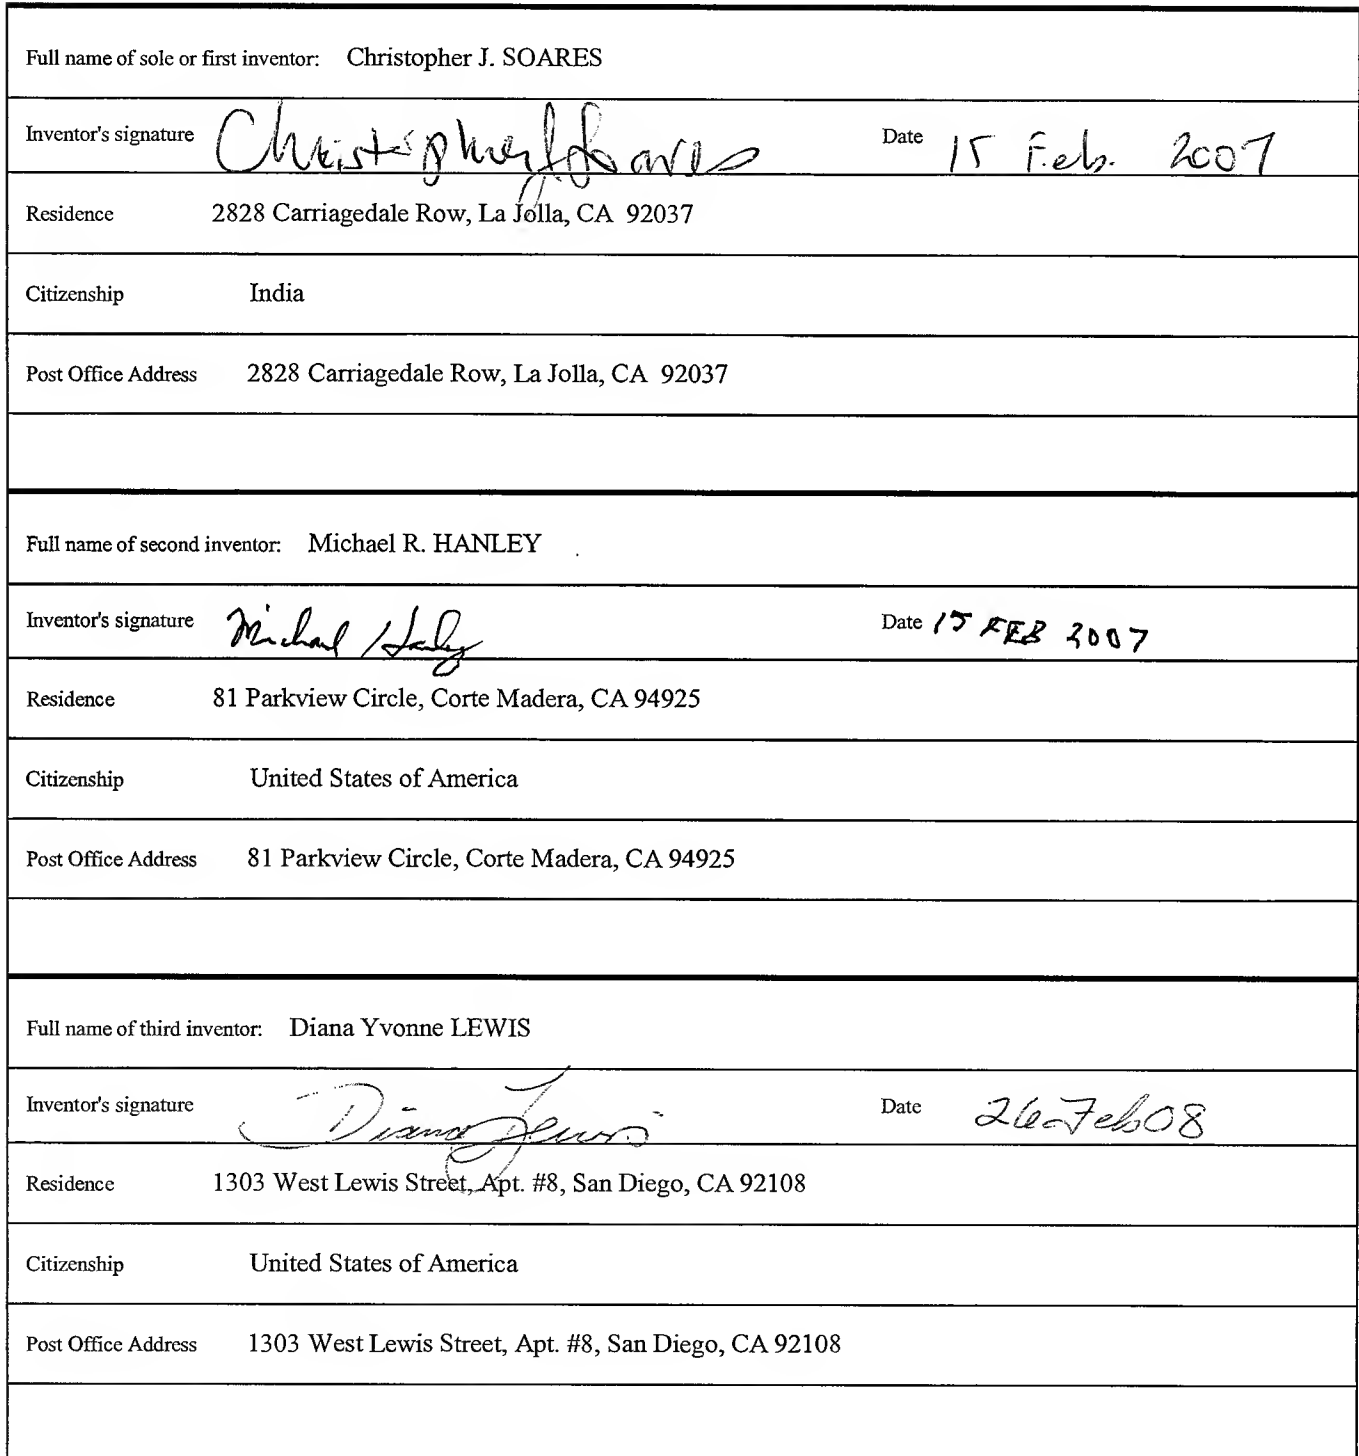 Full name of sole or first inventor: Christopher J. SOARES
Inventor's signature Christopher J Soares Date 15 Feb. 2007
Residence 2828 Carriagedale Row, La Jolla, CA 92037
Citizenship India
Post Office Address 2828 Carriagedale Row, La Jolla, CA 92037
Full name of second inventor: Michael R. HANLEY
Inventor's signature Michael Hanley Date 15 FEB 2007
Residence 81 Parkview Circle, Corte Madera, CA 94925
Citizenship United States of America
Post Office Address 81 Parkview Circle, Corte Madera, CA 94925
Full name of third inventor: Diana Yvonne LEWIS
Inventor's signature Diana Lewis Date 26-Feb08
Residence 1303 West Lewis Street, Apt. #8, San Diego, CA 92108
Citizenship United States of America
Post Office Address 1303 West Lewis Street, Apt. #8, San Diego, CA 92108